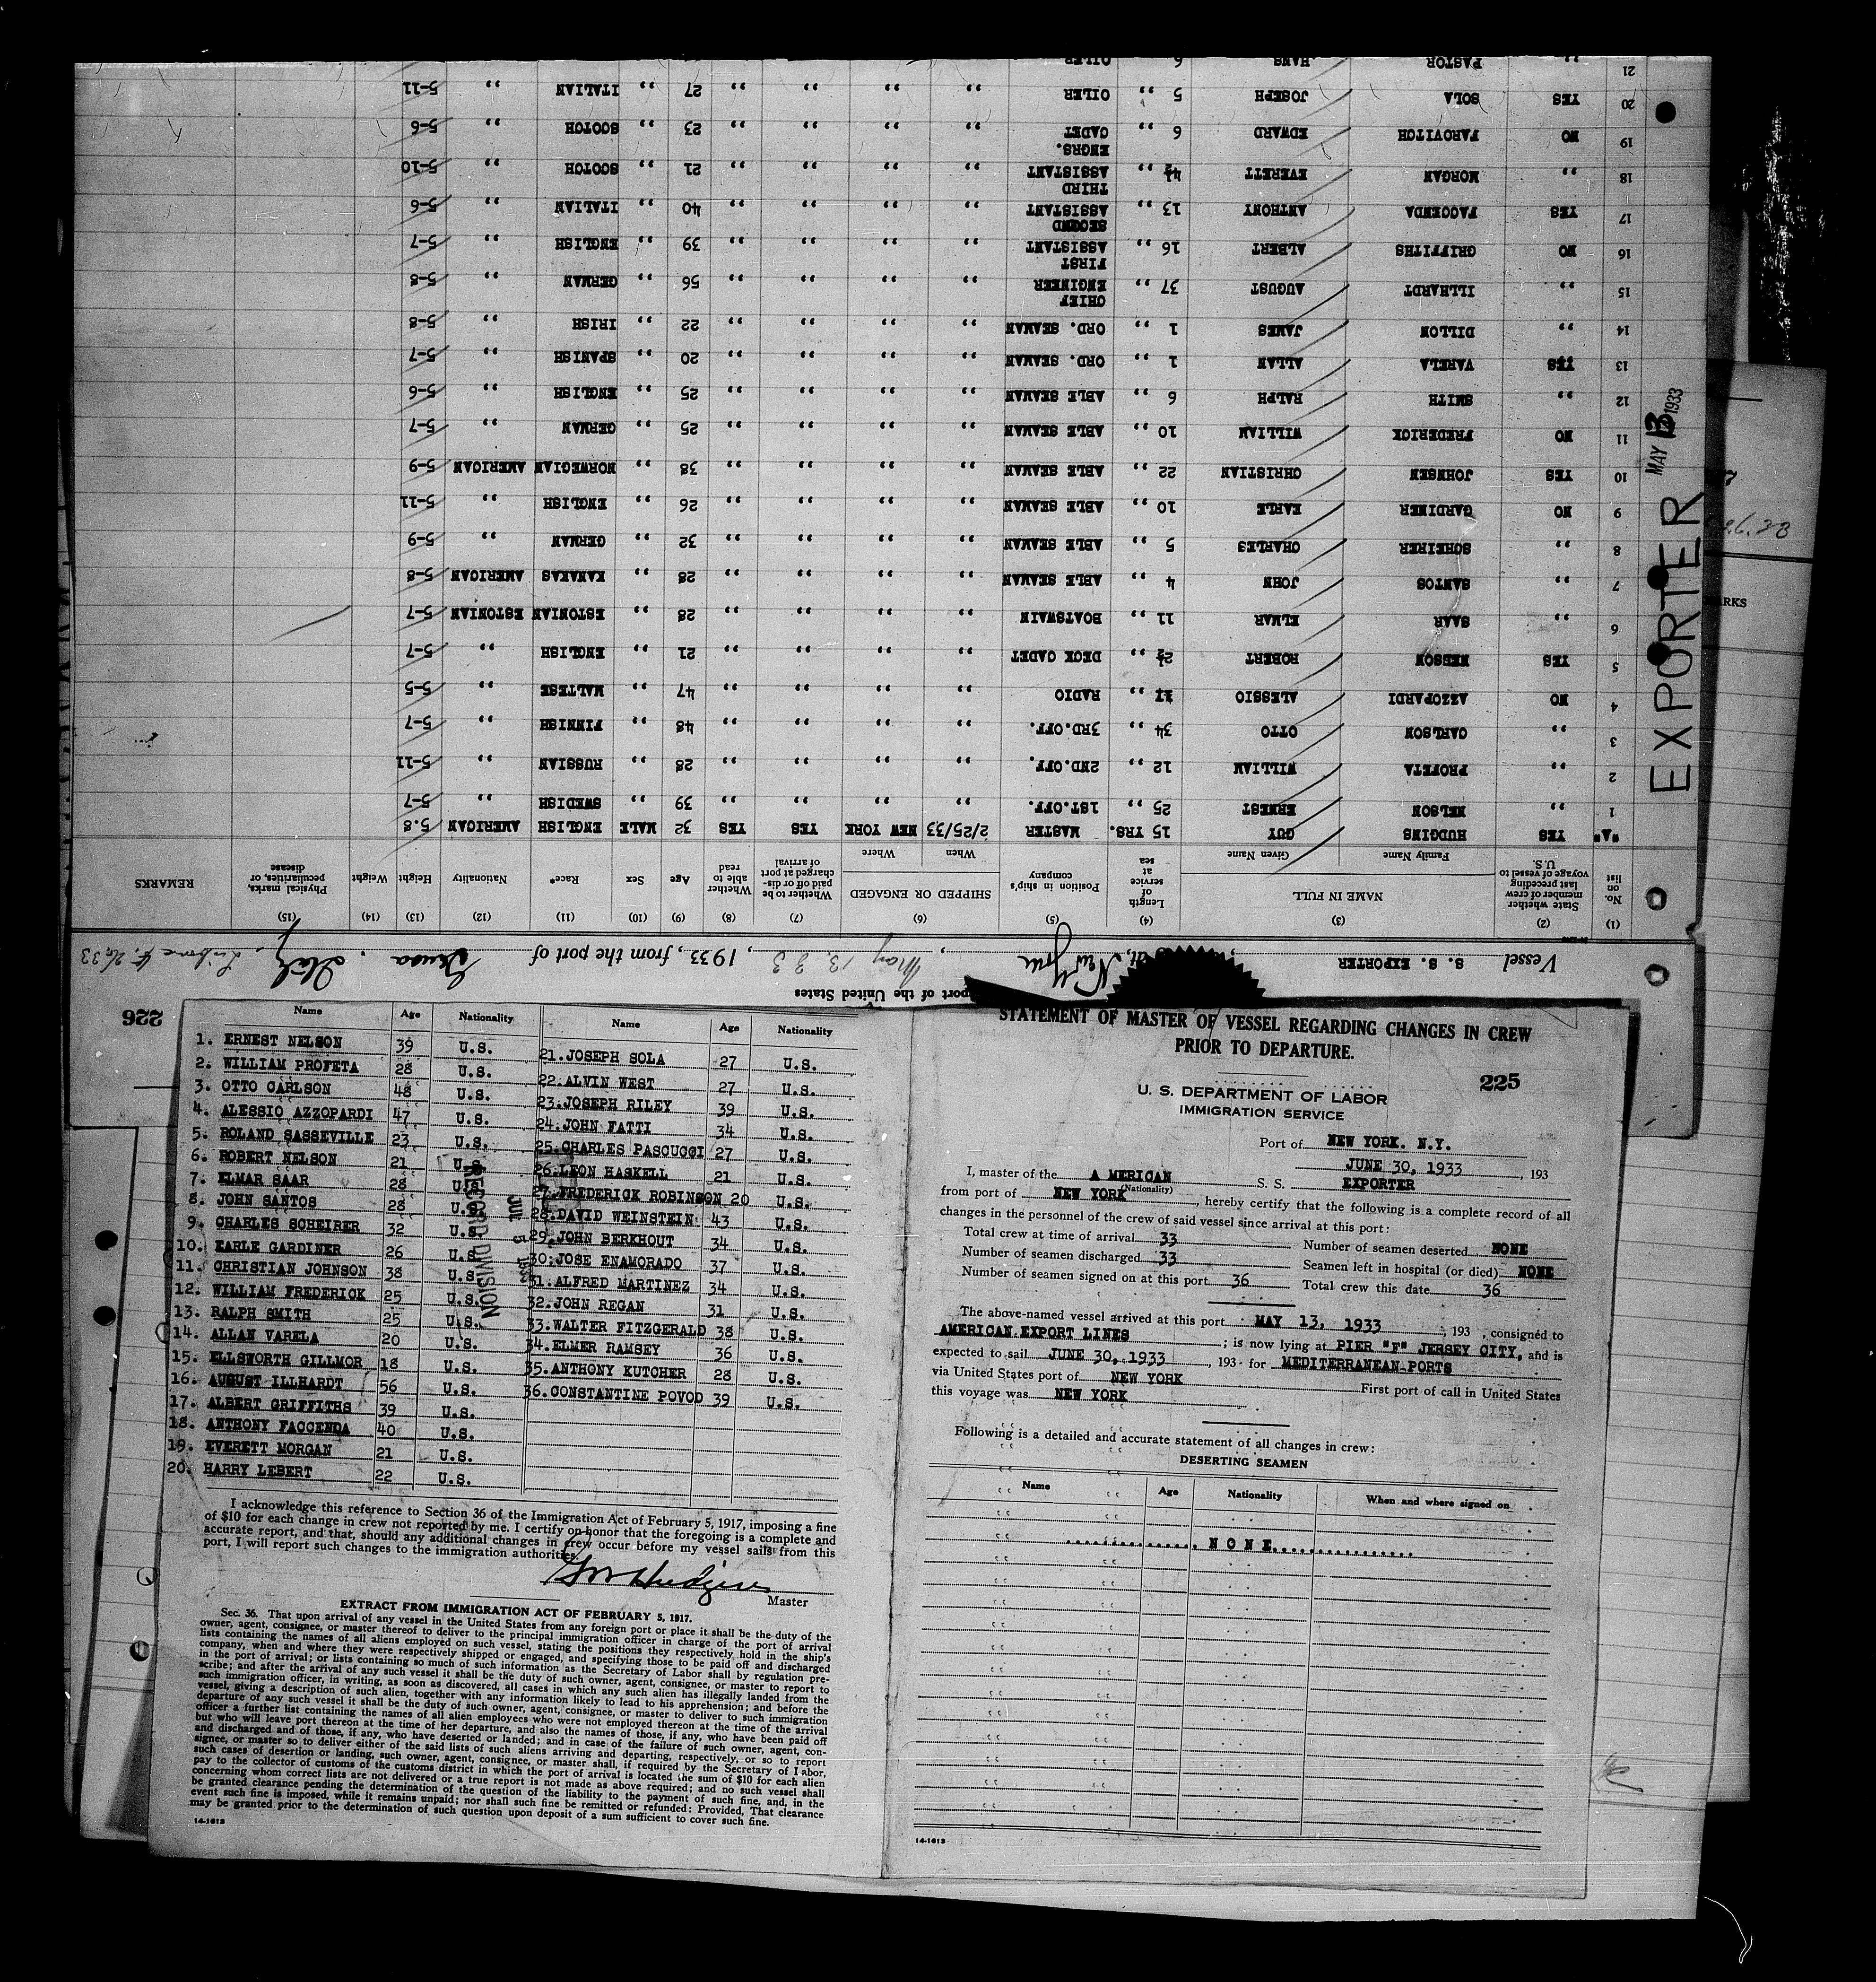 226
port of the United States
Vessel S. S. EXPORTER, at New York, May 13, 33, 1933, from the port of Genua, Italy, Lisbone 4.26.33
(1) No. on list
(2) State whether member of crew last preceding voyage of vessel to U.S.
(3) NAME IN FULL Family Name Given Name
(4) Length of service at sea
(5) Position in ship's company
(6) SHIPPED OR ENGAGED When Where
(7) Whether to be paid off or discharged at port of arrival
(8) Whether able to read
(9) Age
(10) Sex
(11) Race*
(12) Nationality
(13) Height
(14) Weight
(15) Physical marks, peculiarities, or disease
REMARKS
"A" YES HUDGINS GUY 15 YRS. MASTER 2/25/33 NEW YORK YES YES 32 MALE ENGLISH AMERICAN 5.8
1 ,, NELSON ERNEST 25 ,, 1ST.OFF. ,, ,, ,, ,, 39 ,, SWEDISH ,, 5-7
2 ,, PROFETA WILLIAM 12 ,, 2ND.OFF. ,, ,, ,, ,, 28 ,, RUSSIAN ,, 5-11
3 ,, CARLSON OTTO 34 ,, 3RD.OFF. ,, ,, ,, ,, 48 ,, FINNISH ,, 5-7
4 NO AZZOPARDI ALESSIO ,, RADIO ,, ,, ,, ,, 47 ,, MALTESE ,, 5-5
5 YES NELSON ROBERT 2½ ,, DECK CADET ,, ,, ,, ,, 21 ,, ENGLISH ,, 5-7
6 ,, SAAR ELMAR 11 ,, BOATSWAIN ,, ,, ,, ,, 28 ,, ESTONIAN ESTONIAN 5-7
7 ,, SANTOS JOHN 4 ,, ABLE SEAMAN ,, ,, ,, ,, 28 ,, KANAKAS AMERICAN 5-8
8 ,, SCHEIRER CHARLES 5 ,, ABLE SEAMAN ,, ,, ,, ,, 32 ,, GERMAN ,, 5-9
9 NO GARDINER EARLE 10 ,, ABLE SEAMAN ,, ,, ,, ,, 26 ,, ENGLISH ,, 5-11
10 YES JOHNSEN CHRISTIAN 22 ,, ABLE SEAMAN ,, ,, ,, ,, 38 ,, NORWEGIAN AMERICAN 5-9
11 NO FREDERICK WILLIAM 10 ,, ABLE SEAMAN ,, ,, ,, ,, 25 ,, GERMAN ,, 5-7
12 ,, SMITH RALPH 6 ,, ABLE SEAMAN ,, ,, ,, ,, 25 ,, ENGLISH ,, 5-6
13 YES VARELA ALLAN 1 ,, ORD. SEAMAN ,, ,, ,, ,, 20 ,, SPANISH ,, 5-7
14 ,, DILLON JAMES 1 ,, ORD. SEAMAN ,, ,, ,, ,, 22 ,, IRISH ,, 5-8
15 ,, ILLHARDT AUGUST 37 ,, CHIEF ENGINEER ,, ,, ,, ,, 56 ,, GERMAN ,, 5-8
16 NO GRIFFITHS ALBERT 16 ,, FIRST ASSISTANT ,, ,, ,, ,, 39 ,, ENGLISH ,, 5-7
17 YES FACCENDA ANTHONY 13 ,, SECOND ASSISTANT ,, ,, ,, ,, 40 ,, ITALIAN ,, 5-6
18 ,, MORGAN EVERETT 4½ ,, THIRD ASSISTANT ,, ,, ,, ,, 21 ,, SCOTCH ,, 5-10
19 NO FAROVITCH EDWARD 6 ,, ENGRS. CADET ,, ,, ,, ,, 23 ,, SCOTCH ,, 5-6
20 YES SOLA JOSEPH 5 ,, OILER ,, ,, ,, ,, 27 ,, ITALIAN ,, 5-11
21 ,, PASTOR HANS 6 OILER
EXPORTER MAY 13 1933
ARKS
Name Age Nationality Name Age Nationality
1. ERNEST NELSON 39 U.S.
2. WILLIAM PROFETA 28 U.S.
3. OTTO CARLSON 48 U.S.
4. ALESSIO AZZOPARDI 47 U.S.
5. ROLAND SASSEVILLE 23 U.S.
6. ROBERT NELSON 21 U.S.
7. ELMAR SAAR 28 U.S.
8. JOHN SANTOS 28 U.S.
9. CHARLES SCHEIRER 32 U.S.
10. EARLE GARDINER 26 U.S.
11. CHRISTIAN JOHNSON 38 U.S.
12. WILLIAM FREDERICK 25 U.S.
13. RALPH SMITH 25 U.S.
14. ALLAN VARELA 20 U.S.
15. ELLSWORTH GILLMOR 18 U.S.
16. AUGUST ILLHARDT 56 U.S.
17. ALBERT GRIFFITHS 39 U.S.
18. ANTHONY FACCENDA 40 U.S.
19. EVERETT MORGAN 21 U.S.
20. HARRY LEBERT 22 U.S.
21. JOSEPH SOLA 27 U.S.
22. ALVIN WEST 27 U.S.
23. JOSEPH RILEY 39 U.S.
24. JOHN FATTI 34 U.S.
25. CHARLES PASCUCCI 27 U.S.
26. LEON HASKELL 21 U.S.
27. FREDERICK ROBINSON 20 U.S.
28. DAVID WEINSTEIN 43 U.S.
29. JOHN BERKHOUT 34 U.S.
30. JOSE ENAMORADO 37 U.S.
31. ALFRED MARTINEZ 34 U.S.
32. JOHN REGAN 31 U.S.
33. WALTER FITZGERALD 38 U.S.
34. ELMER RAMSEY 36 U.S.
35. ANTHONY KUTCHER 28 U.S.
36. CONSTANTINE POVOD 39 U.S.
RECORD DIVISION
JUL 5 1933
I acknowledge this reference to Section 36 of the Immigration Act of February 5, 1917, imposing a fine
of $10 for each change in crew not reported by me. I certify on honor that the foregoing is a complete and
accurate report, and that, should any additional changes in crew occur before my vessel sails from this
port, I will report such changes to the immigration authorities.
GW Hudgins
Master
EXTRACT FROM IMMIGRATION ACT OF FEBRUARY 5, 1917.
Sec. 36. That upon arrival of any vessel in the United States from any foreign port or place it shall be the duty of the
owner, agent, consignee, or master thereof to deliver to the principal immigration officer in charge of the port of arrival
lists containing the names of all aliens employed on such vessel, stating the positions they respectively hold in the ship's
company, when and where they were respectively shipped or engaged, and specifying those to be paid off and discharged
in the port of arrival; or lists containing so much of such information as the Secretary of Labor shall by regulation pre-
scribe; and after the arrival of any such vessel it shall be the duty of such owner, agent, consignee, or master to report to
such immigration officer, in writing, as soon as discovered, all cases in which any such alien has illegally landed from the
vessel, giving a description of such alien, together with any information likely to lead to his apprehension; and before the
departure of any such vessel it shall be the duty of such owner, agent, consignee, or master to deliver to such immigration
officer a further list containing the names of all alien employees who were not employed thereon at the time of the arrival
but who will leave port thereon at the time of her departure, and also the names of those, if any, who have been paid off
and discharged and of those, if any, who have deserted or landed; and in case of the failure of such owner, agent, con-
signee, or master so to deliver either of the said lists of such aliens arriving and departing, respectively, or so to report
such cases of desertion or landing, such owner, agent, consignee, or master shall, if required by the Secretary of Labor,
pay to the collector of customs of the customs district in which the port of arrival is located the sum of $10 for each alien
concerning whom correct lists are not delivered or a true report is not made as above required; and no such vessel shall
be granted clearance pending the determination of the question of the liability to the payment of such fine, and, in the
event such fine is imposed, while it remains unpaid; nor shall such fine be remitted or refunded: Provided, That clearance
may be granted prior to the determination of such question upon deposit of a sum sufficient to cover such fine.
14-1613
STATEMENT OF MASTER OF VESSEL REGARDING CHANGES IN CREW
PRIOR TO DEPARTURE.
225
U. S. DEPARTMENT OF LABOR
IMMIGRATION SERVICE
Port of NEW YORK. N.Y.
JUNE 30, 1933, 193
I, master of the A MERICAN S. S. EXPORTER
(Nationality)
from port of NEW YORK, hereby certify that the following is a complete record of all
changes in the personnel of the crew of said vessel since arrival at this port:
Total crew at time of arrival 33 Number of seamen deserted NONE
Number of seamen discharged 33 Seamen left in hospital (or died) NONE
Number of seamen signed on at this port 36 Total crew this date 36
The above-named vessel arrived at this port MAY 13, 1933, 193 , consigned to
AMERICAN EXPORT LINES; is now lying at PIER "F" JERSEY CITY, and is
expected to sail JUNE 30, 1933, 193 for MEDITERRANEAN PORTS
via United States port of NEW YORK First port of call in United States
this voyage was NEW YORK
Following is a detailed and accurate statement of all changes in crew:
DESERTING SEAMEN
Name Age Nationality When and where signed on
NONE
14-1613